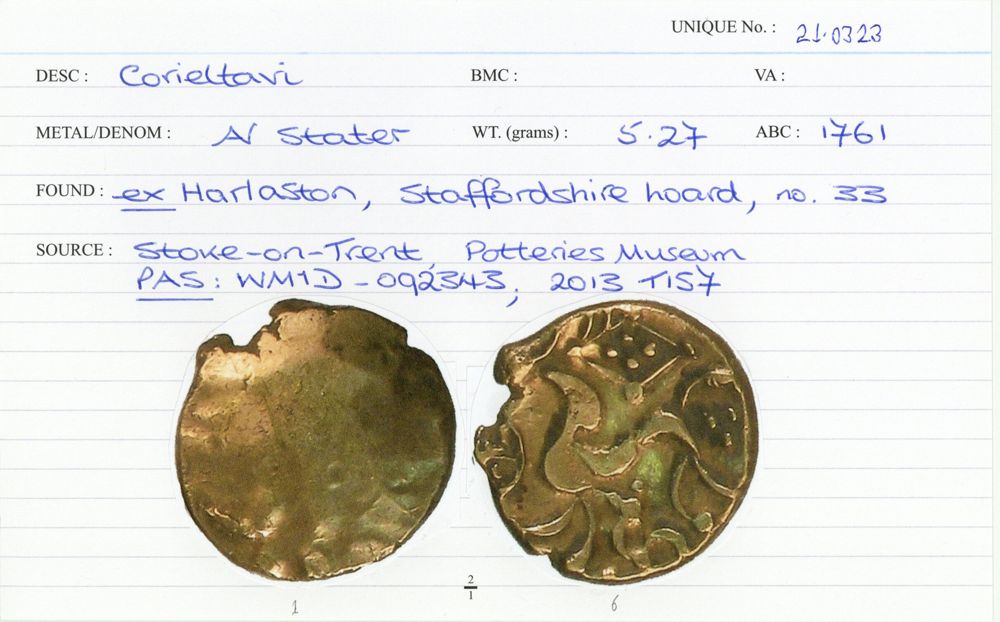 UNIQUE No. : 21.0323
DESC : Corieltavi BMC : VA :
METAL/DENOM : AV Stater WT. (grams) : 5.27 ABC : 1761
FOUND : ex Harlaston, Staffordshire hoard, no. 33
SOURCE : Stoke-on-Trent, Potteries Museum
PAS : WMID - 092343, 2013 T157
2/1
1 6